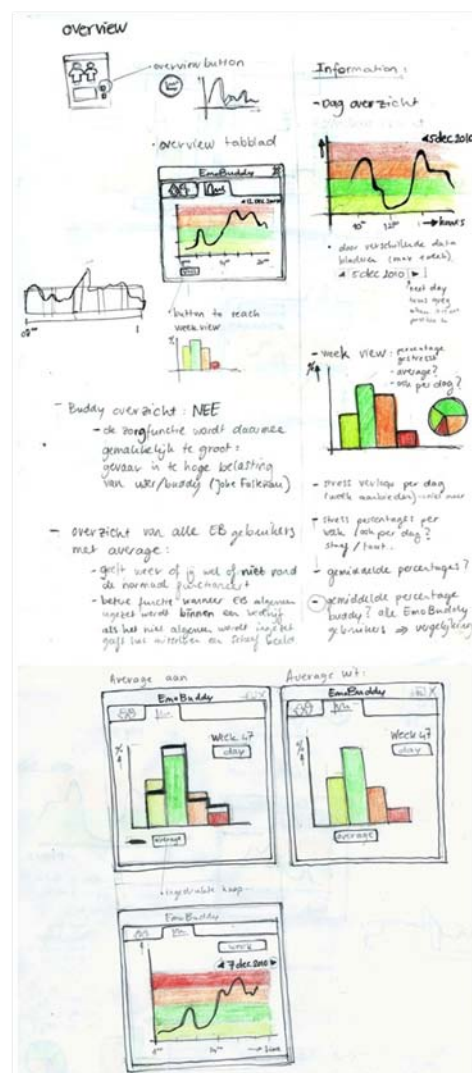 overview
overview button
overview tabblad
EmoBuddy
12 dec 2010
week
button to reach
week view
%
Buddy overzicht : NEE
- de zorgfunctie wordt daarmee
gemakkelijk te groot :
gevaar in te hoge belasting
van user/buddy
- overzicht van alle EB gebruikers
met average :
- geeft weer of jij wel of niet rond
de normaal functioneert
- betere functie wanneer EB algemeen
ingezet wordt binnen een bedrijf
als het niet algemeen wordt ingezet
geeft het een scheef beeld
Information :
- Dag overzicht
5 dec 2010
10 12 1 hours
door verschillende data
bladeren
5 dec 2010
next day
- week view :
percentage
gestresst
- average?
- ook per dag?
%
- stress verloop per dag
- stress percentages per
week / ook per dag?
staaf / taart
- gemiddelde percentages?
- gemiddelde percentage
buddy? alle EmoBuddy
gebruikers => vergelijking
Average aan
EmoBuddy
%
week 47
day
average
Average uit :
EmoBuddy
%
week 47
day
average
ingedrukte knop
EmoBuddy
week
7 dec 2010
time